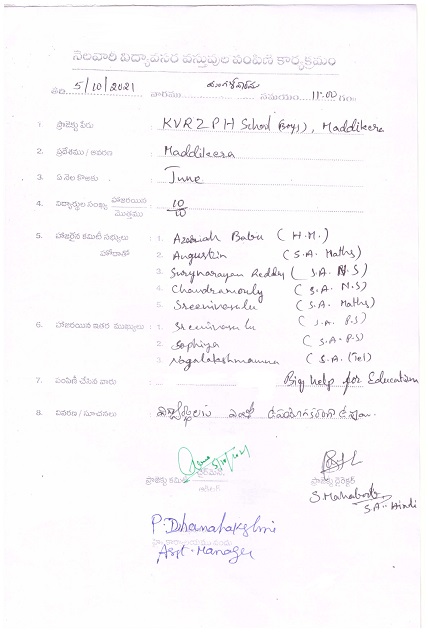 నెలవారీ విద్యావసర వస్తువుల పంపిణీ కార్యక్రమం
తేది 5/10/2021 వారము మంగళవారము సమయం 11:00 గం
1 ప్రాజెక్టు పేరు : KVRZPH School (Boys), Maddikera
2. ప్రదేశము / ఆవరణ : Maddikera
3. ఏ నెల కొరకు : June
4. విద్యార్థుల సంఖ్య హాజరయిన / మొత్తము : 10/10
5. హాజరైన కమిటీ సభ్యులు : 1. Azariah Babu (H.M.)
హోదాతో 2. Augustin (S.A. Maths)
3. Suryanarayan Reddy (S.A. N.S)
4. Chandramouly (S.A. N.S)
5. Sreenivasulu (S.A. Maths)
6. హాజరయిన ఇతర ముఖ్యులు : 1. Sreenivasulu (S.A. P.S)
2. Sophiya (S.A. P.S)
3. Nagalakshmamma (S.A. (Tel)
7. పంపిణీ చేసిన వారు : Big help for Education
8. వివరణ / సూచనలు :
5/10/2021
ప్రాజెక్టు కమిటీ ఛైర్మన్
ప్రాజెక్టు డైరెక్టర్
S. Mahaboob
S.A - Hindi
P. Dhanalakshmi
Asst. Manager